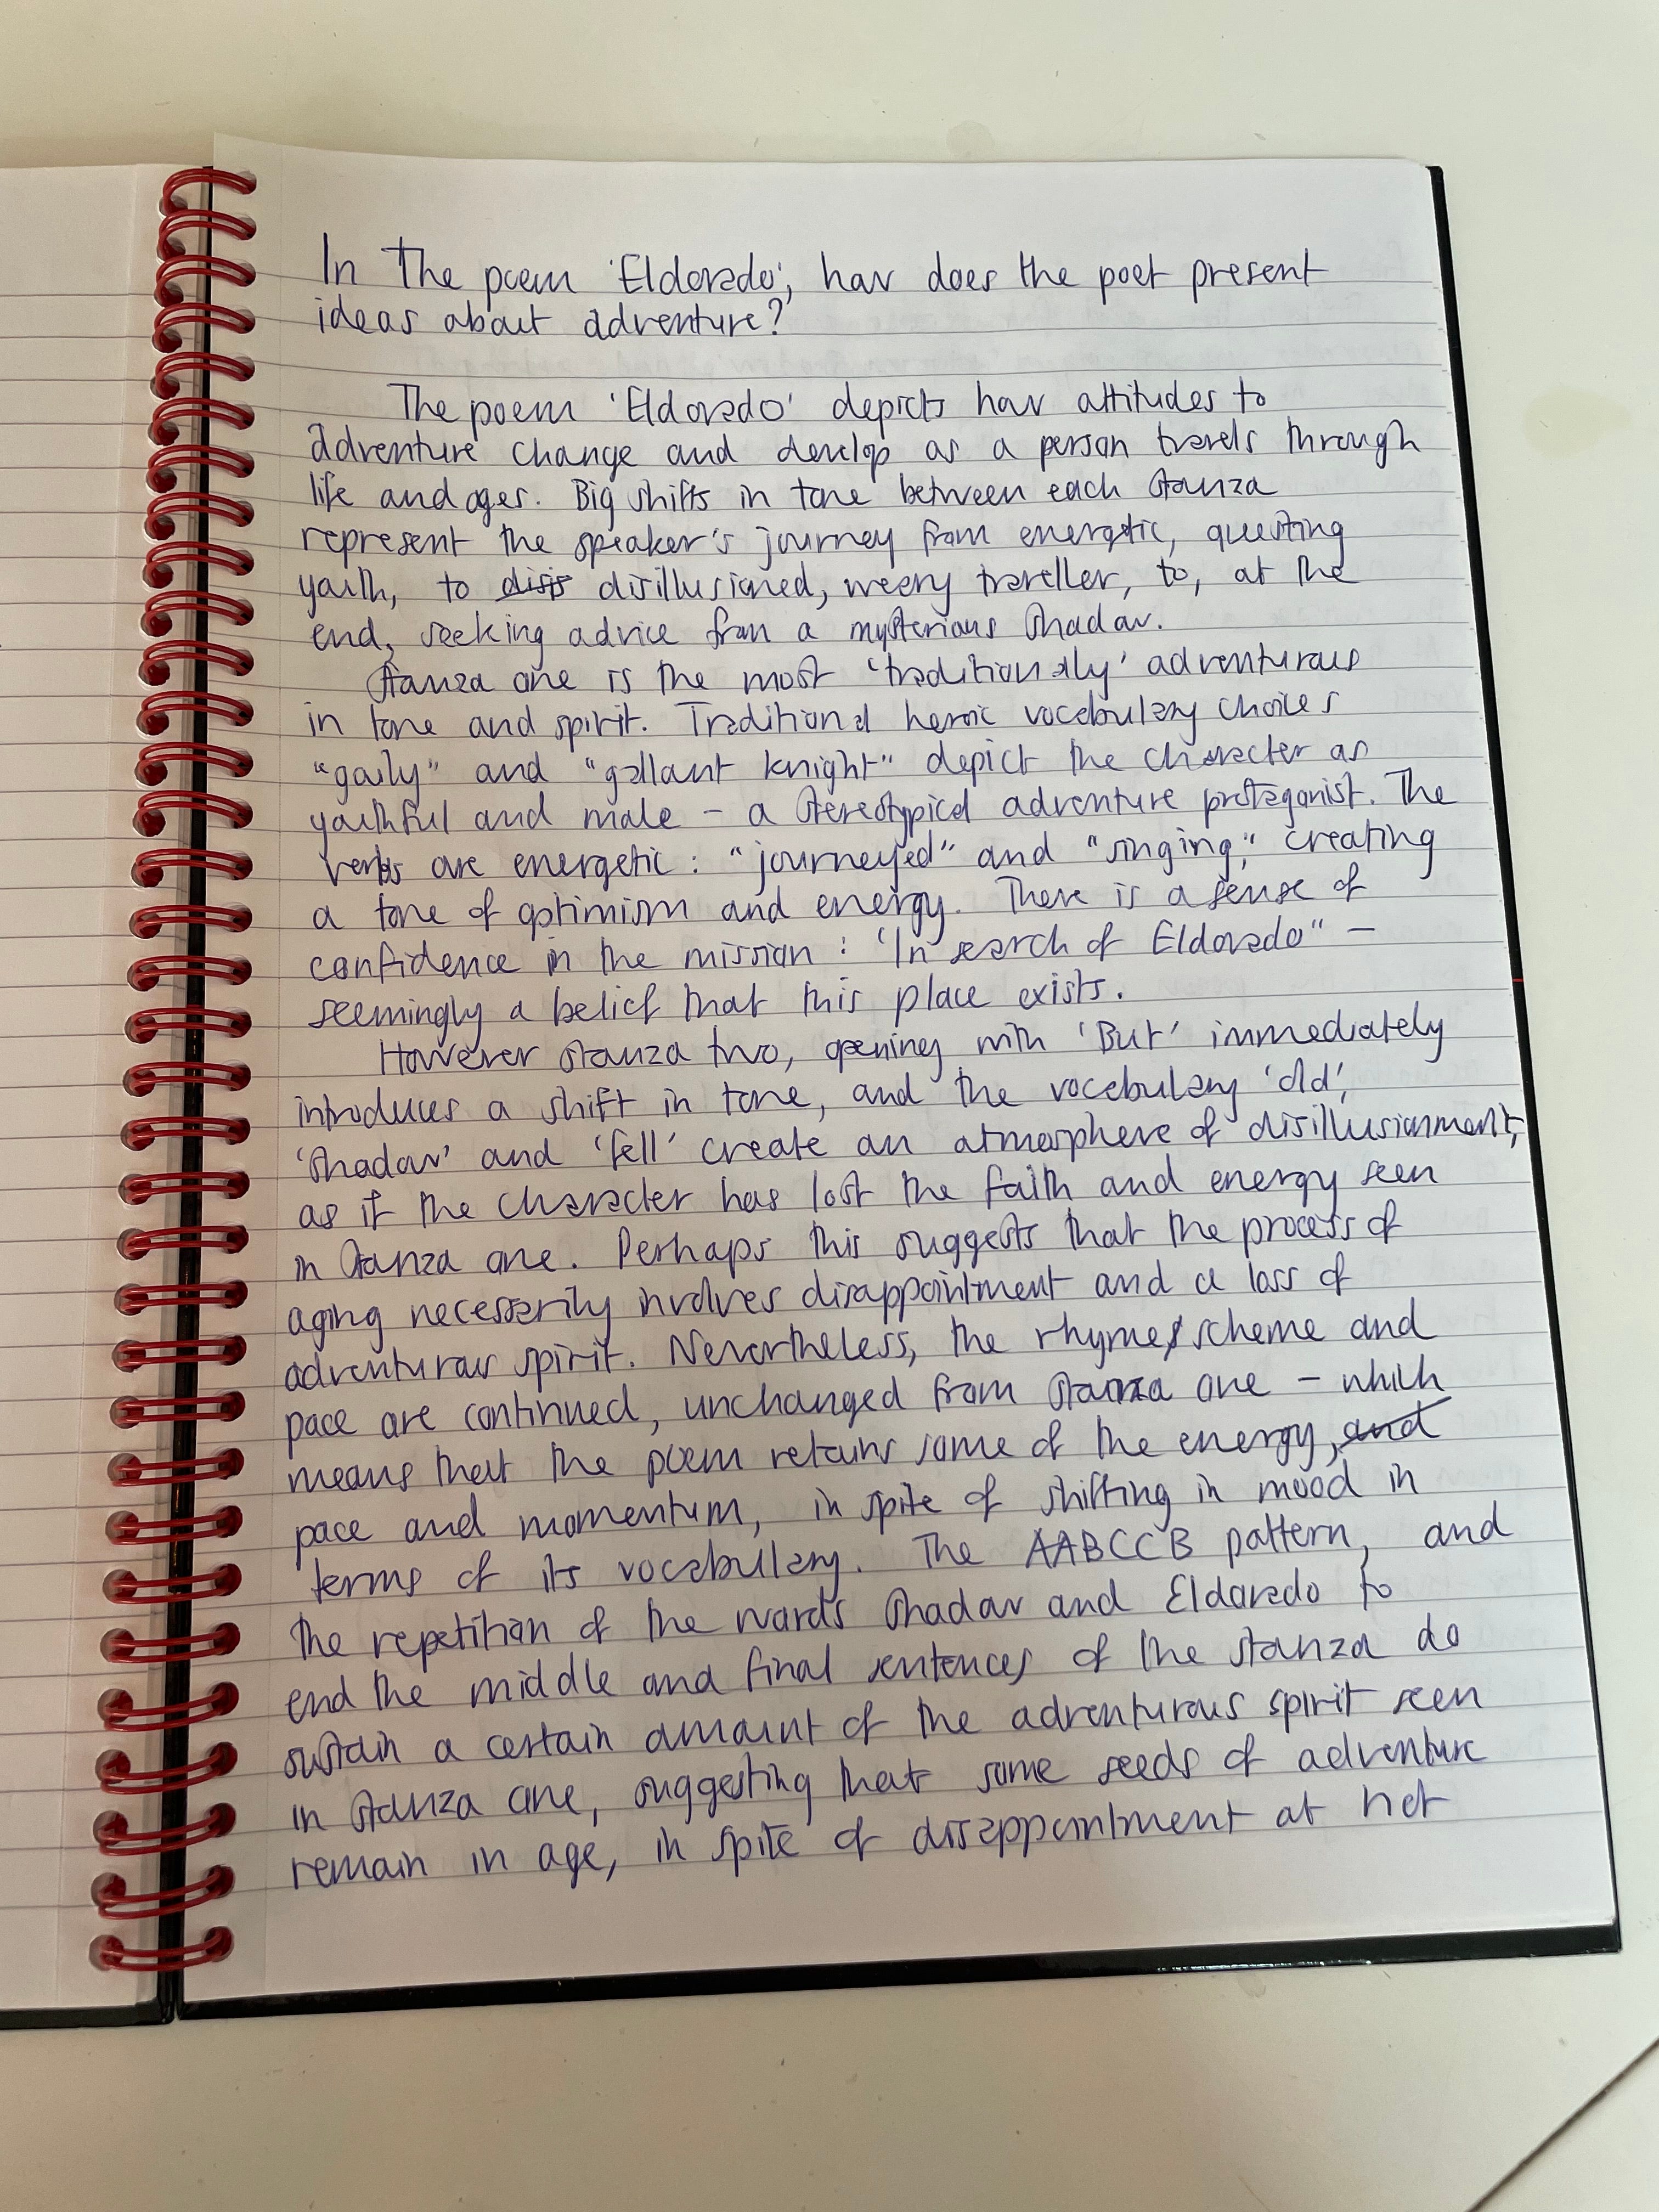 In The poem 'Eldorado', how does the poet present
ideas about adventure?
The poem 'Eldorado' depicts how attitudes to
adventure change and develop as a person travels through
life and ages. Big shifts in tone between each stanza
represent the speaker's journey from energetic, questing
youth, to disis disillusioned, weary traveller, to, at the
end, seeking advice from a mysterious shadow.
Stanza one is the most 'traditionally' adventurous
in tone and spirit. Traditional heroic vocabulary choices
"gaily" and "gallant knight" depict the character as
youthful and male - a stereotypical adventure protagonist. The
verbs are energetic: "journeyed" and "singing," creating
a tone of optimism and energy. There is a sense of
confidence in the mission: 'In search of Eldorado" -
seemingly a belief that this place exists.
However stanza two, opening with 'But' immediately
introduces a shift in tone, and the vocabulary 'old',
'shadow' and 'fell' create an atmosphere of disillusionment,
as if the character has lost the faith and energy seen
in stanza one. Perhaps this suggests that the process of
aging necessarily involves disappointment and a loss of
adventurous spirit. Nevertheless, the rhyme scheme and
pace are continued, unchanged from stanza one - which
means that the poem retains some of the energy, and
pace and momentum, in spite of shifting in mood in
terms of its vocabulary. The AABCCB pattern, and
the repetition of the words shadow and Eldorado to
end the middle and final sentences of the stanza do
sustain a certain amount of the adventurous spirit seen
in stanza one, suggesting that some seeds of adventure
remain in age, in spite of disappointment at not